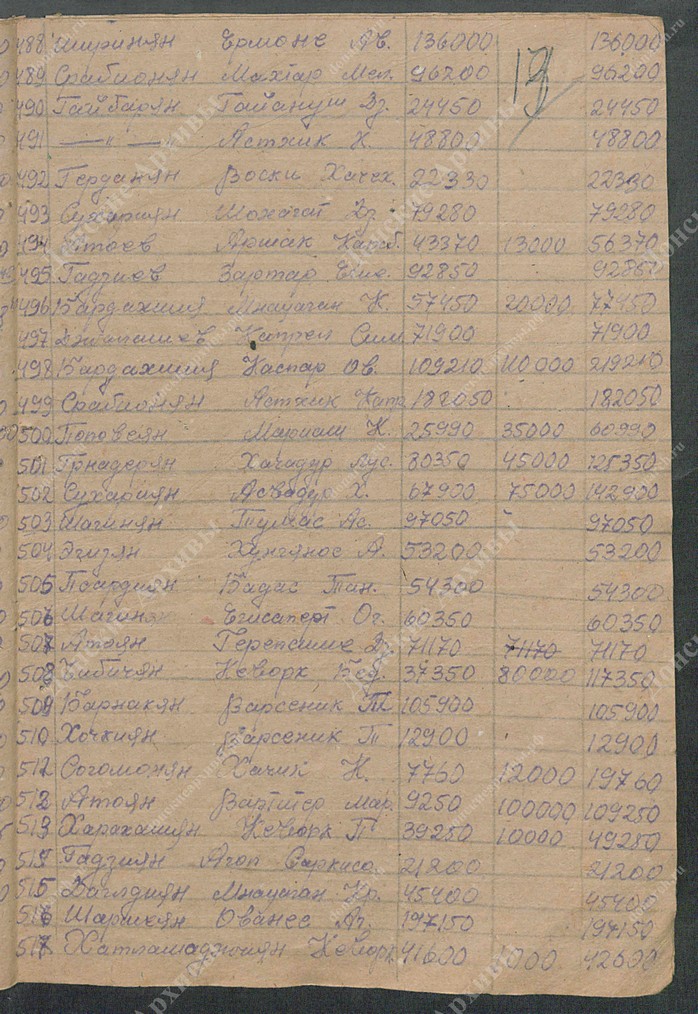 488 Ширинян Ермоне Ав. 136000 136000
19
489 Срабионян Махтар Мел. 96200 96200
490 Гайбарян Гайануш Дз. 24450 24450
491 —"— Астхик К. 48800 48800
492 Герданян Воски Хачех. 22330 22330
493 Сухариян 79280 79280
494 Атоев Аршак Караб. 43370 13000 56370
495 Гадзиев Вартар 92850 92850
496 Бардахчиия Мнацаган К. 57450 20000 77450
497 Катрен Сим 71900 71900
498 Бардахчиия Каспар Ов. 109210 110000 219210
499 Срабионян Астхик Капр 182050 182050
500 Поповеян Мариам К. 25990 35000 60990
501 Грнадерян Хачадур Лус. 80350 45000 125350
502 Сухариян Асвадур Х. 67900 75000 142900
503 Шагинян Тумас Ас. 97050 - 97050
504 Эгизян Хунгянос А. 53200 53200
505 Бадас Тан. 54300 54300
506 Шагинян Егисапет Ог. 60350 60350
507 Атоян Герепсиме Дз. 71170 71170 71170
508 Чибичян Кеворк Бед. 37350 80000 117350
509 Барнакян Варсеник Т 105900 105900
510 Хочкиян Варсеник Т 12900 12900
512 Согомонян Хачик К. 7760 12000 19760
512 Атоян Вартитер Мар. 9250 100000 109250
513 Харахашян Кеворк П 39250 10000 49250
514 Гадзиян Агоп Саркиса. 21200 21200
515 Баглдиян Мнацаган Кр. 45400 45400
516 Ованес Аг. 197150 197150
517 Хатламаджиян Кеворк 41600 1000 42600